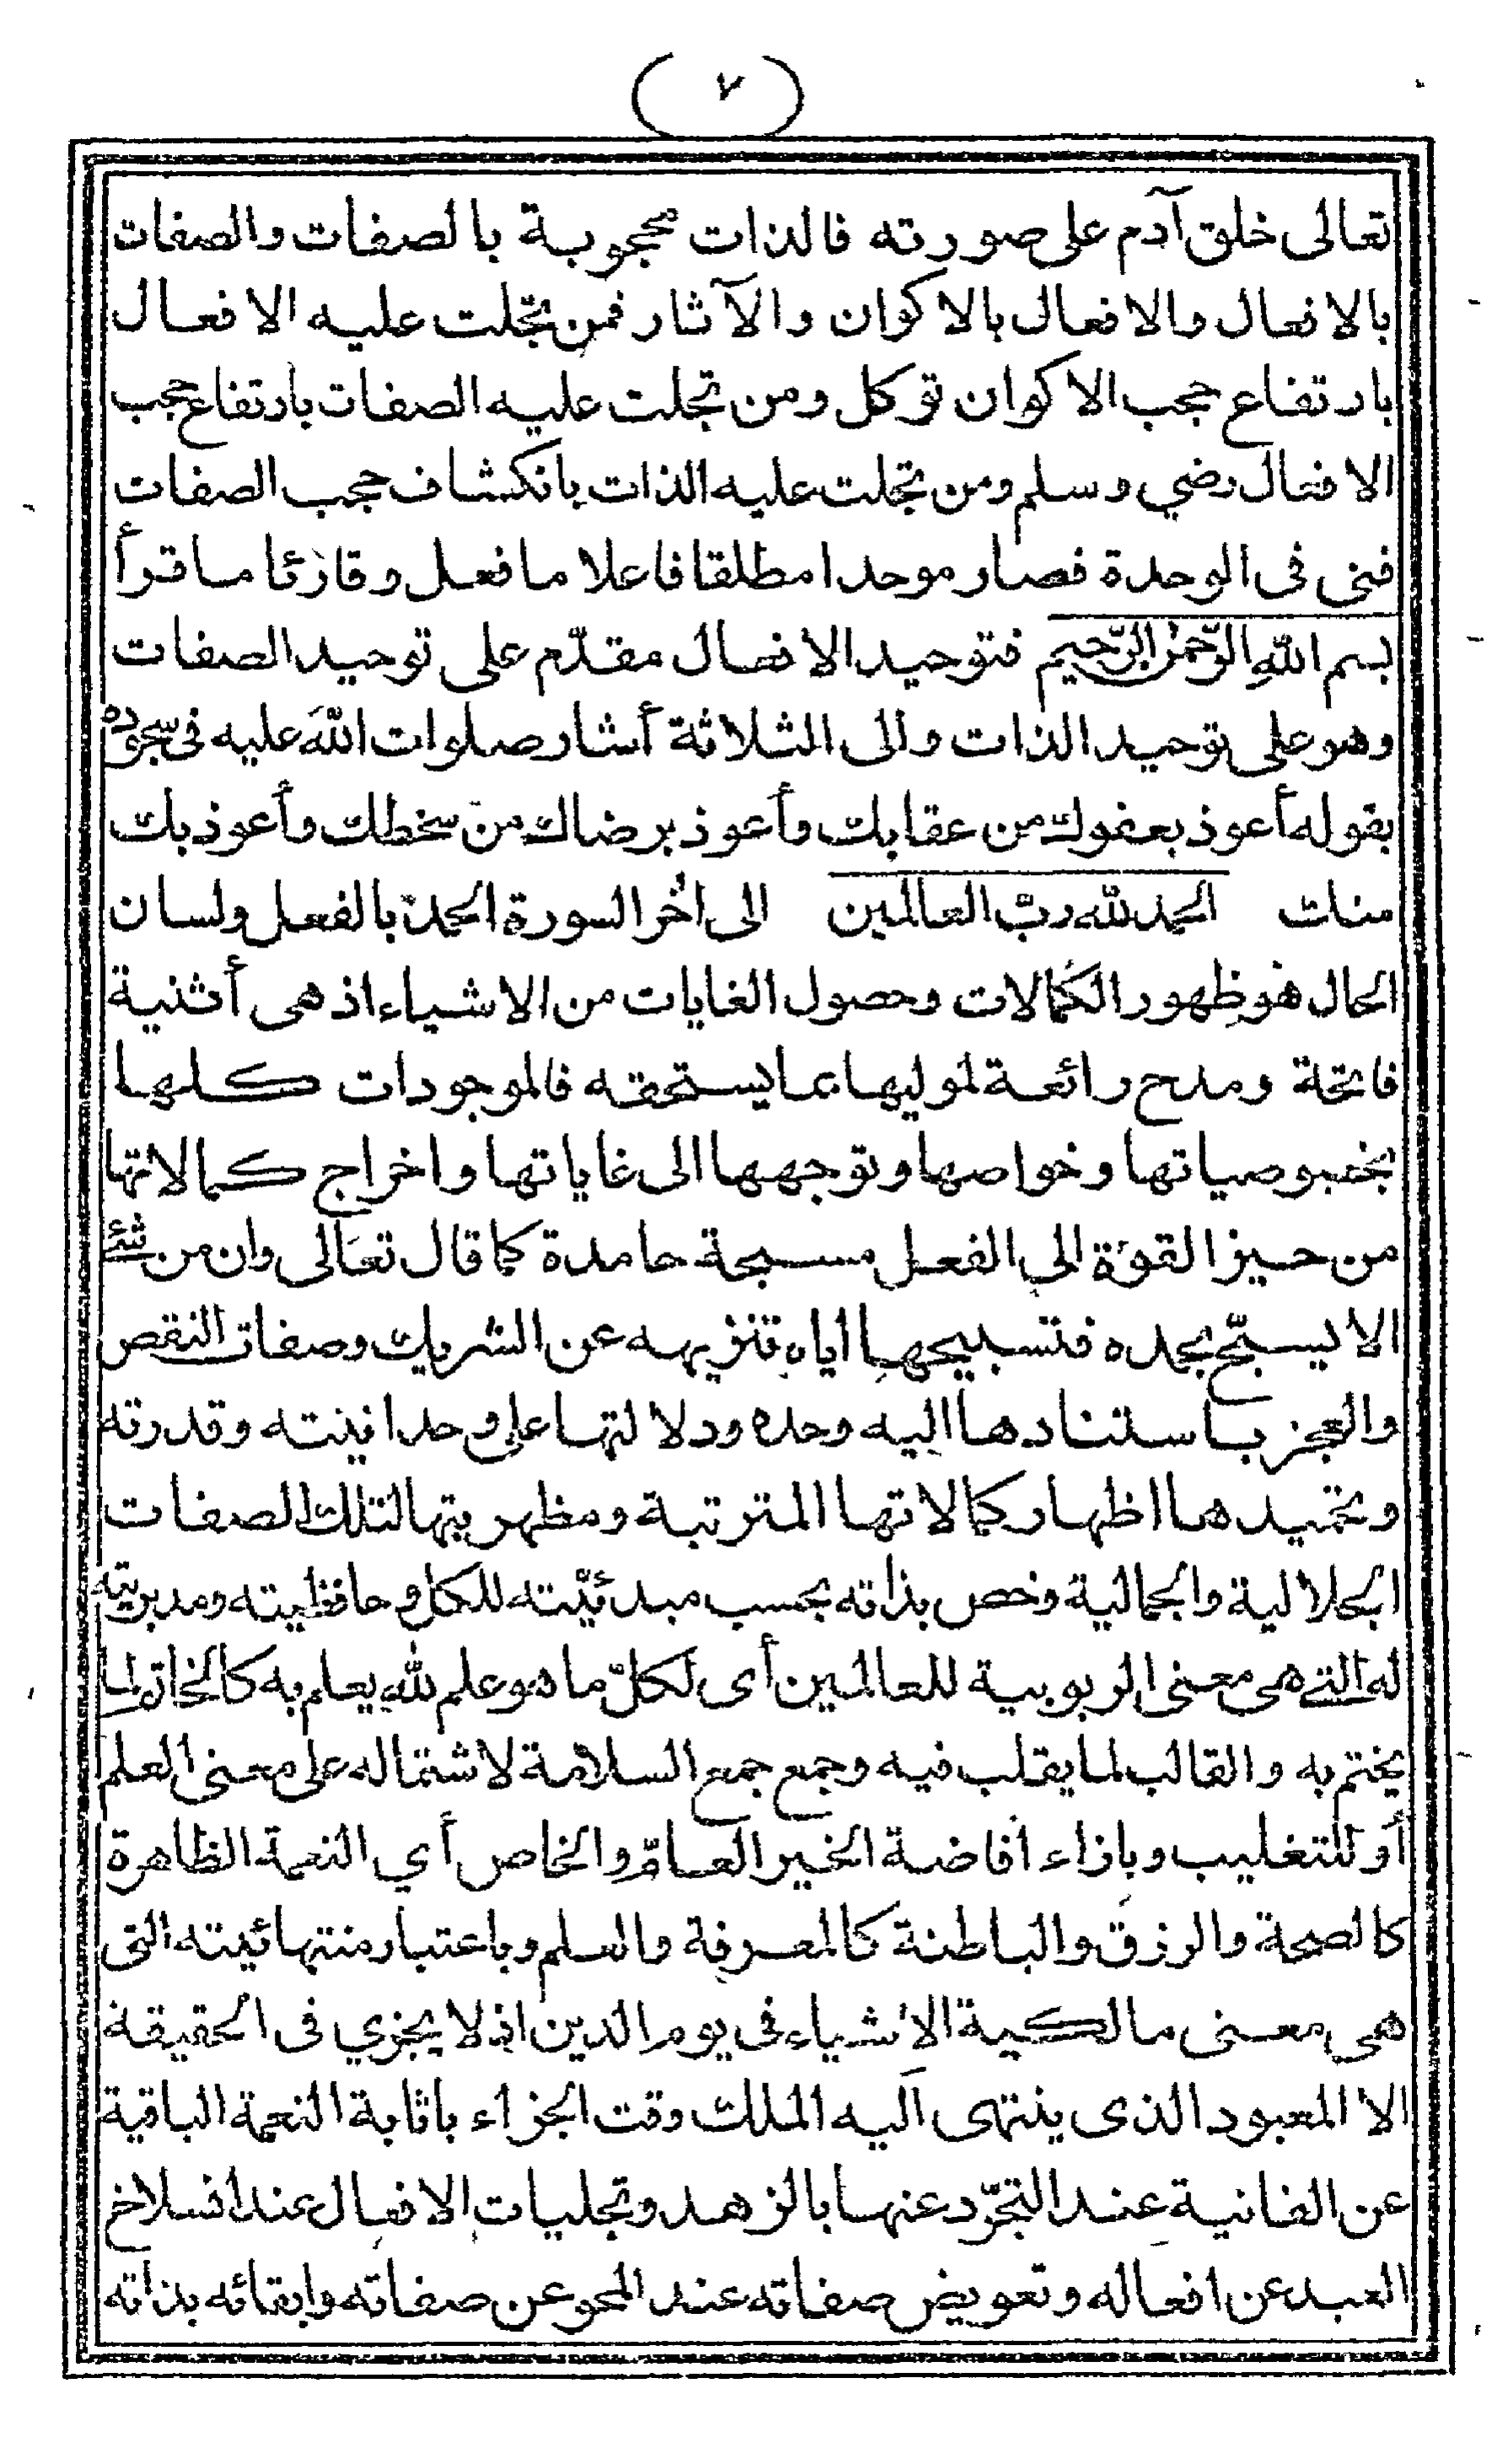 (٧)
تعالى خلق آدم على صورته فالذات محجوبة بالصفات والصفات
بالافعال والافعال بالاكوان والآثار فمن تجلت عليه الافعال
بارتفاع حجب الاكوان توكل ومن تجلت عليه الصفات بارتفاع حجب
الافعال رضي وسلم ومن تجلت عليه الذات بانكشاف حجب الصفات
فنى فى الوحدة فصار موحدا مطلقا فاعلا ما فعل وقارئا ما قرأ
بسم الله الرّحمن الرّحيم فتوحيد الافعال مقدّم على توحيد الصفات
وهو على توحيد الذات والى الثلاثة أشار صلوات الله عليه فى سجوده
بقوله أعوذ بعفوك من عقابك وأعوذ برضاك من سخطك وأعوذ بك
منك الحمد لله ربّ العالمين الى اخر السورة الحمد بالفعل ولسان
الحال هو ظهور الكمالات وحصول الغايات من الاشياء اذ هى أثنية
فاتحة ومدح رائعة لموليها بما يستحقه فالموجودات كلها
بخصوصياتها وخواصها وتوجهها الى غاياتها واخراج كمالاتها
من حيز القوّة الى الفعل مسبحة حامدة كما قال تعالى وان من شئ
الا يسبّح بحمده فتسبيحها اياه تنزيهه عن الشريك وصفات النقص
والعجز باستنادها اليه وحده ودلالتها على وحدانيته وقدرته
وتحميدها اظهار كمالاتها المترتبة ومظهريتها لتلك الصفات
الجلالية والجمالية وخص بذاته بحسب مبدئيّته للكل وحافظيته ومدبريته
له التى هى معنى الربوبية للعالمين أى لكلّ ما هو علم لله يعلم به كالخاتم لما
يختم به والقالب لما يقلب فيه وجمع جمع السلامة لاشتماله على معنى العلم
أو للتغليب وبازاء افاضة الخير العامّ والخاص أي النعمة الظاهرة
كالصحة والرزق والباطنة كالمعرفة والعلم وباعتبار منتهائيته التى
هى معنى مالكية الاشياء فى يوم الدين اذ لا يجزي فى الحقيقة
الا المعبود الذى ينتهى اليه الملك وقت الجزاء باثابة النعمة الباقية
عن الفانية عند التجرّد عنها بالزهد وتجليات الافعال عند انسلاخ
العبد عن افعاله وتعويض صفاته عند المحو عن صفاته وابقائه بذاته